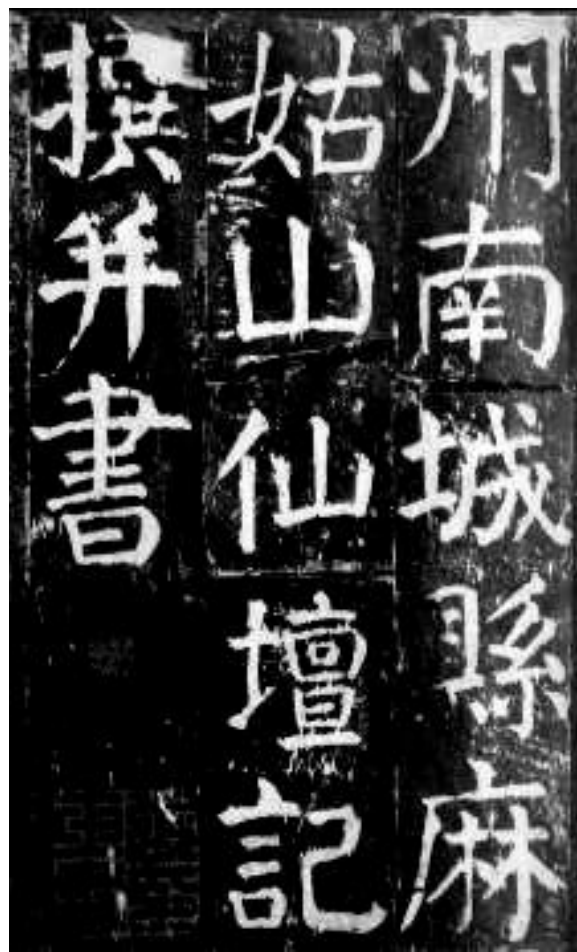 州南城縣麻
姑山仙壇記
撰并書